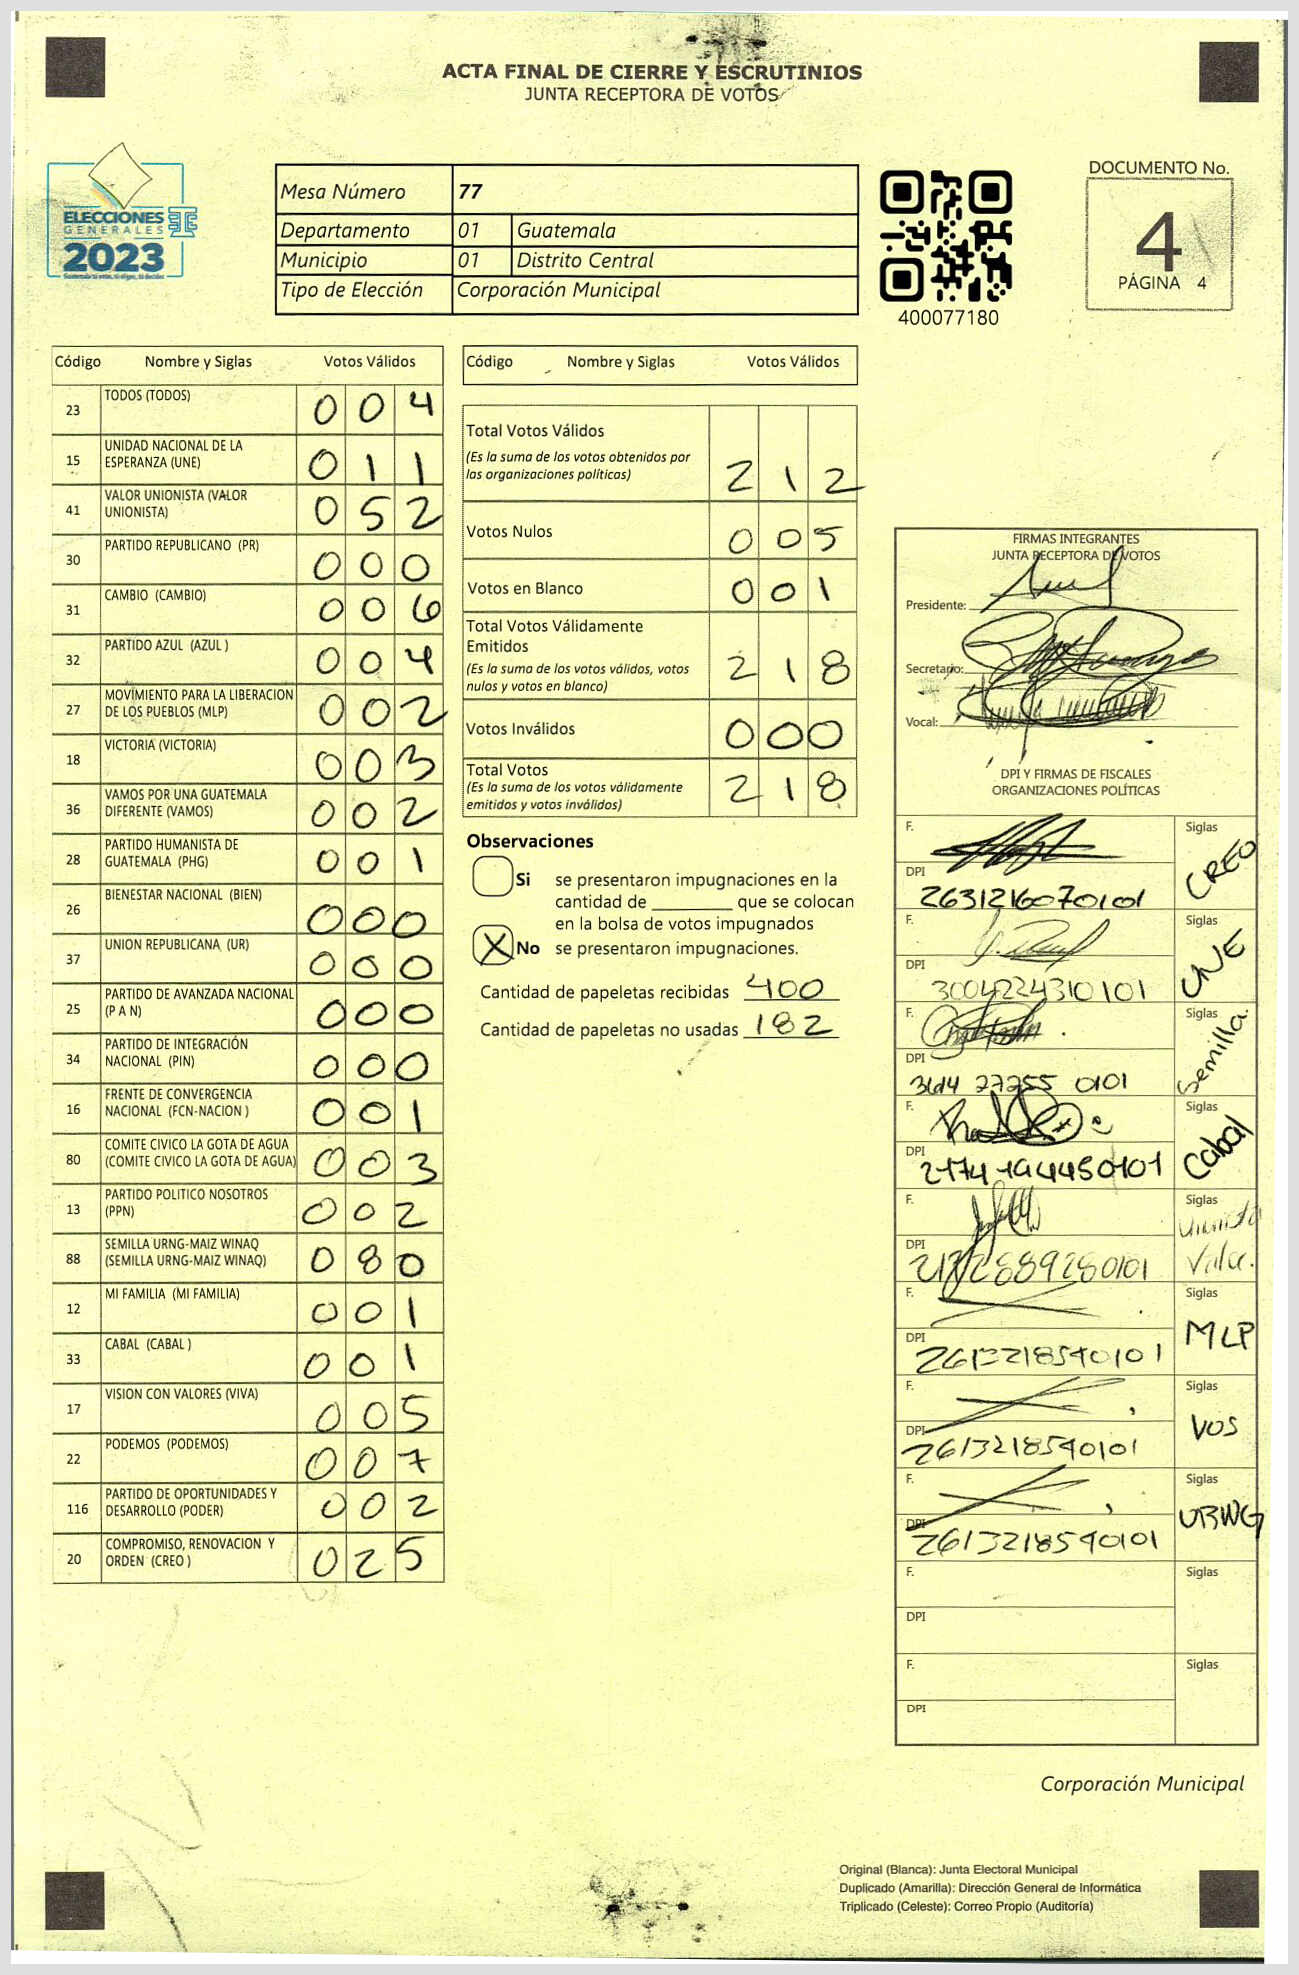 ACTA FINAL DE CIERRE Y ESCRUTINIOS
JUNTA RECEPTORA DE VOTOS
ELECCIONES
GENERALES
2023
Mesa Número 77
Departamento 01 Guatemala
Municipio 01 Distrito Central
Tipo de Elección Corporación Municipal
400077180
DOCUMENTO No.
4
PÁGINA 4
Código Nombre y Siglas Votos Válidos
23 TODOS (TODOS) 0 0 4
15 UNIDAD NACIONAL DE LA
ESPERANZA (UNE) 0 1 1
41 VALOR UNIONISTA (VALOR
UNIONISTA) 0 5 2
30 PARTIDO REPUBLICANO (PR) 0 0 0
31 CAMBIO (CAMBIO) 0 0 6
32 PARTIDO AZUL (AZUL ) 0 0 4
27 MOVIMIENTO PARA LA LIBERACION
DE LOS PUEBLOS (MLP) 0 0 2
18 VICTORIA (VICTORIA) 0 0 3
36 VAMOS POR UNA GUATEMALA
DIFERENTE (VAMOS) 0 0 2
28 PARTIDO HUMANISTA DE
GUATEMALA (PHG) 0 0 1
26 BIENESTAR NACIONAL (BIEN) 0 0 0
37 UNION REPUBLICANA (UR) 0 0 0
25 PARTIDO DE AVANZADA NACIONAL
(P A N) 0 0 0
34 PARTIDO DE INTEGRACIÓN
NACIONAL (PIN) 0 0 0
16 FRENTE DE CONVERGENCIA
NACIONAL (FCN-NACION ) 0 0 1
80 COMITE CIVICO LA GOTA DE AGUA
(COMITE CIVICO LA GOTA DE AGUA) 0 0 3
13 PARTIDO POLITICO NOSOTROS
(PPN) 0 0 2
88 SEMILLA URNG-MAIZ WINAQ
(SEMILLA URNG-MAIZ WINAQ) 0 8 0
12 MI FAMILIA (MI FAMILIA) 0 0 1
33 CABAL (CABAL ) 0 0 1
17 VISION CON VALORES (VIVA) 0 0 5
22 PODEMOS (PODEMOS) 0 0 7
116 PARTIDO DE OPORTUNIDADES Y
DESARROLLO (PODER) 0 0 2
20 COMPROMISO, RENOVACION Y
ORDEN (CREO ) 0 2 5
Código Nombre y Siglas Votos Válidos
Total Votos Válidos
(Es la suma de los votos obtenidos por
las organizaciones políticas) 2 1 2
Votos Nulos 0 0 5
Votos en Blanco 0 0 1
Total Votos Válidamente
Emitidos
(Es la suma de los votos válidos, votos
nulos y votos en blanco) 2 1 8
Votos Inválidos 0 0 0
Total Votos
(Es la suma de los votos válidamente
emitidos y votos inválidos) 2 1 8
Observaciones
Si se presentaron impugnaciones en la
cantidad de ________ que se colocan
en la bolsa de votos impugnados
X No se presentaron impugnaciones.
Cantidad de papeletas recibidas 400
Cantidad de papeletas no usadas 182
FIRMAS INTEGRANTES
JUNTA RECEPTORA DE VOTOS
Presidente:
Secretario:
Vocal:
DPI Y FIRMAS DE FISCALES
ORGANIZACIONES POLÍTICAS
F. Siglas
CREO
DPI
2631216070101
F. Siglas
UNE
DPI
3004224310101
F. Siglas
Semilla.
DPI
27255 0101
F. Siglas
Cabal
DPI
F. Siglas
DPI
F. Siglas
MLP
DPI
2613218540101
F. Siglas
VOS
DPI
2613218540101
F. Siglas
URNG
DPI
2613218540101
F. Siglas
DPI
F. Siglas
DPI
Corporación Municipal
Original (Blanca): Junta Electoral Municipal
Duplicado (Amarilla): Dirección General de Informática
Triplicado (Celeste): Correo Propio (Auditoría)